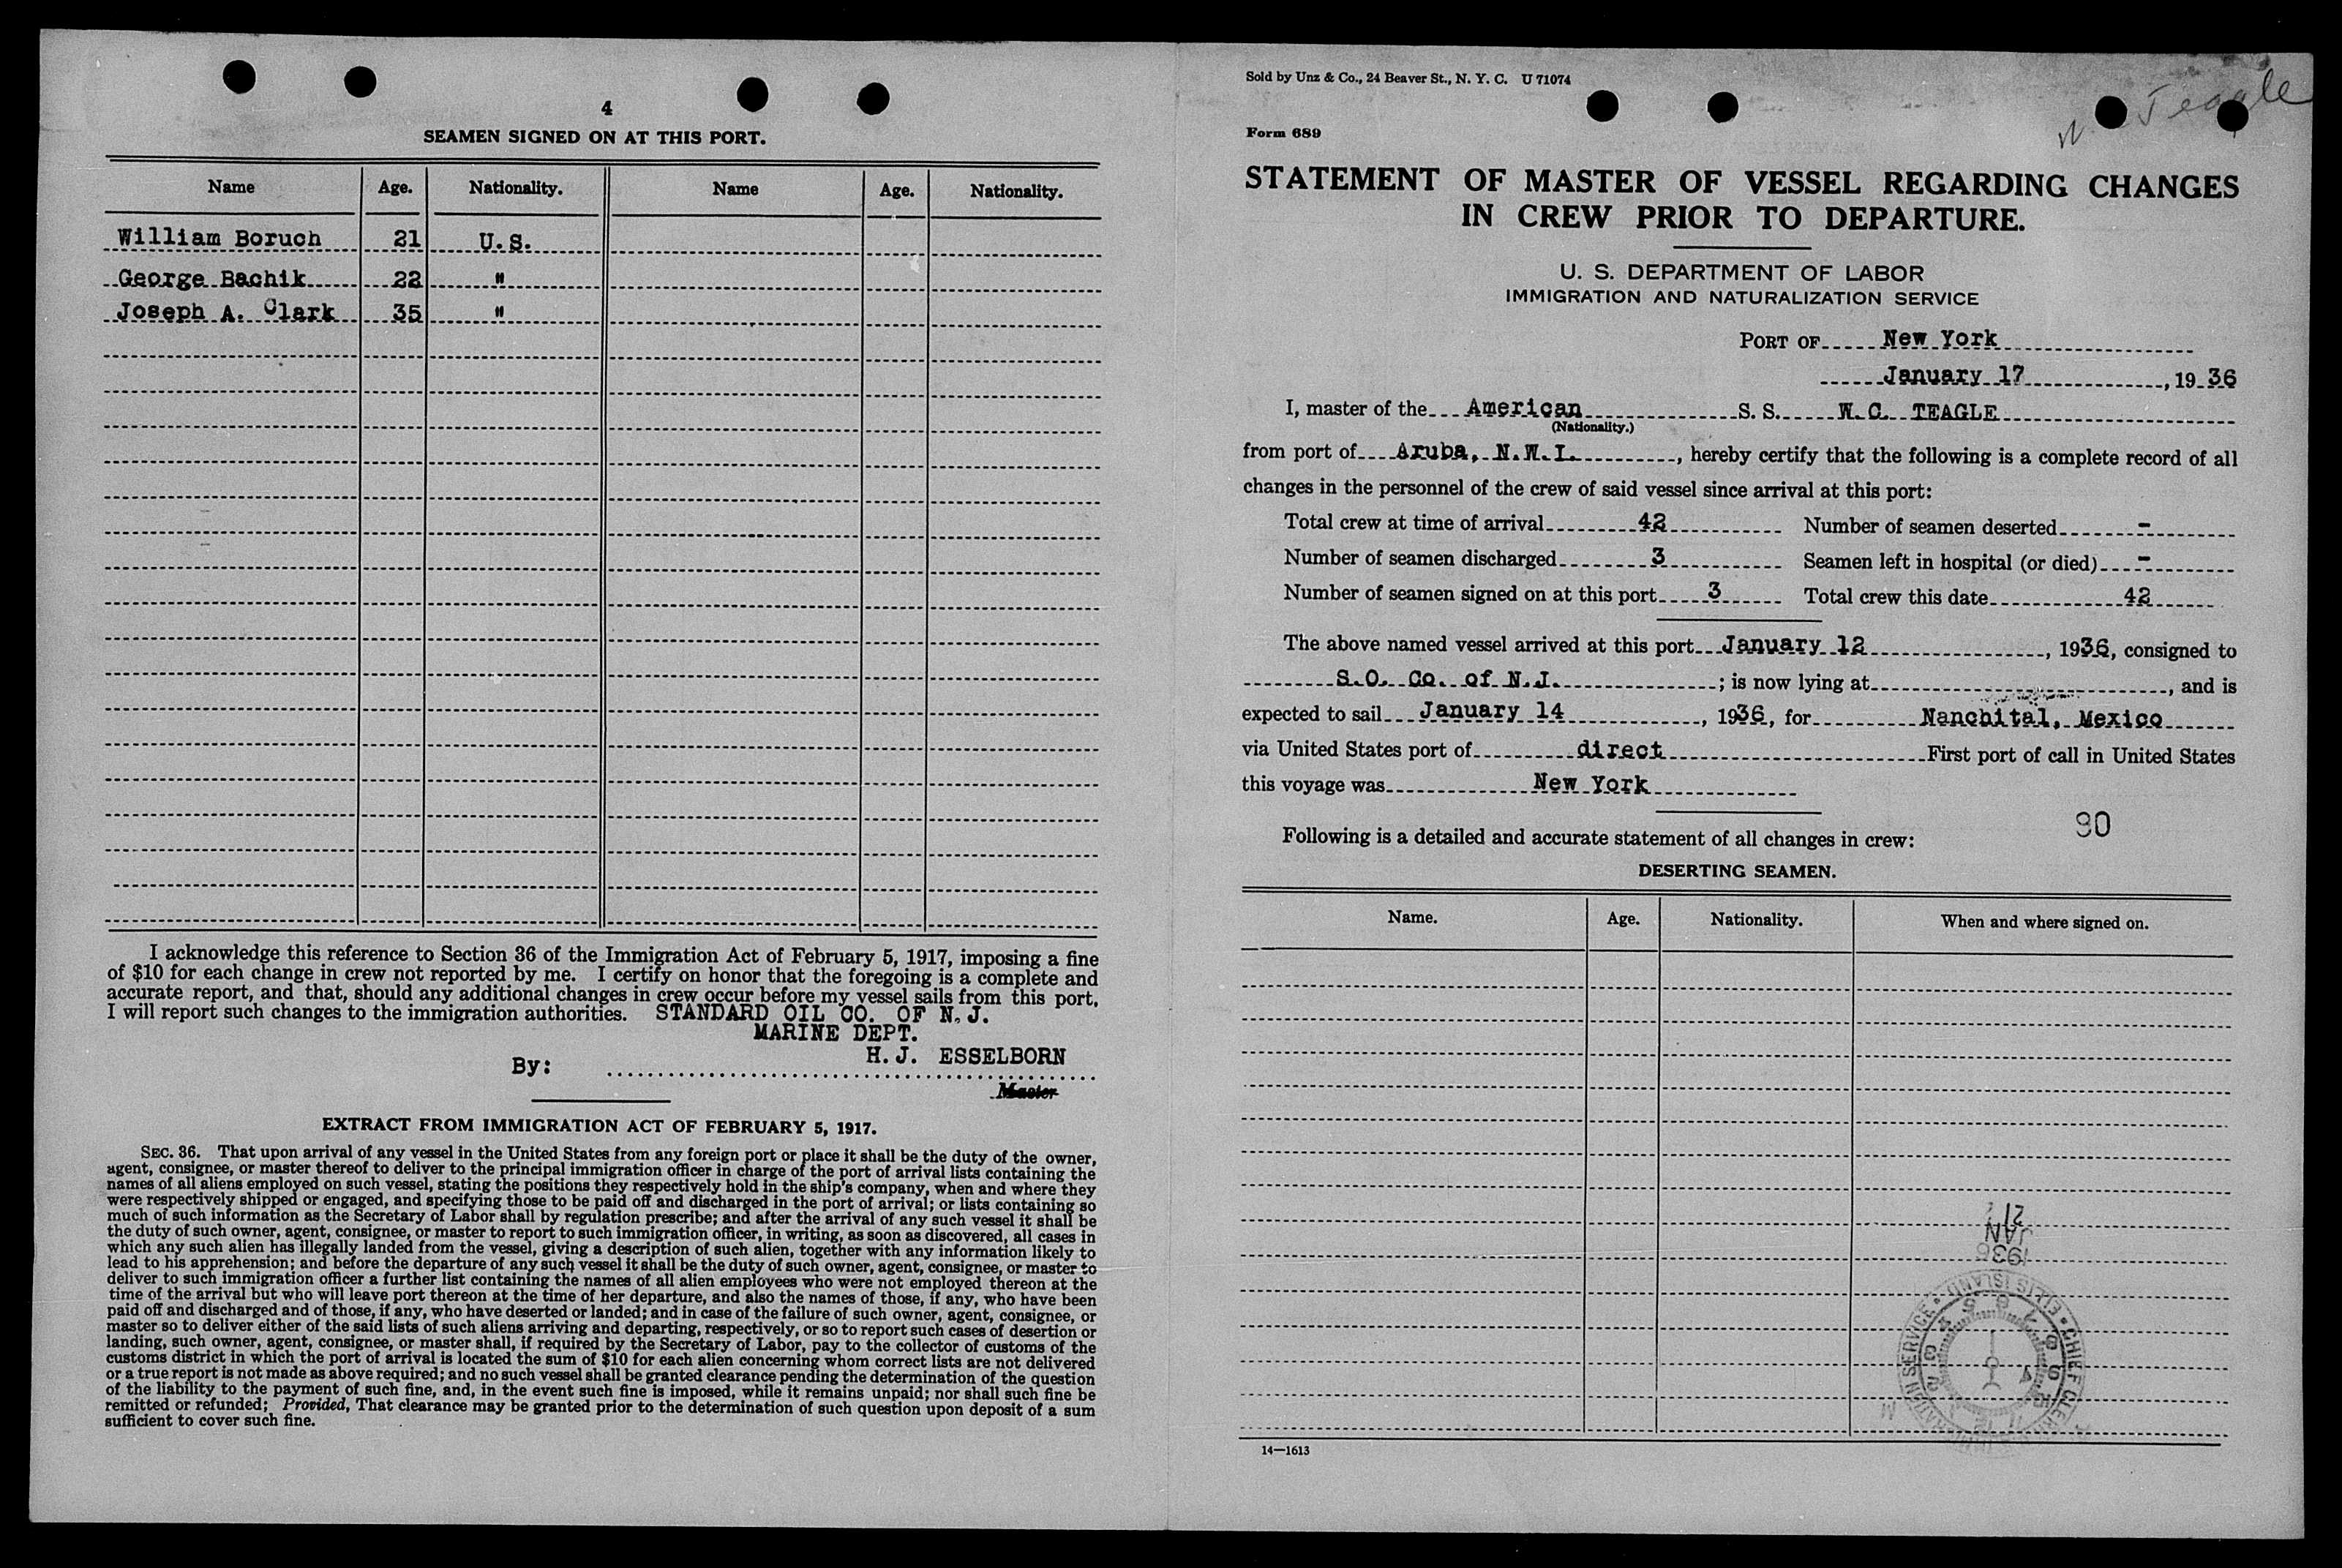 4
SEAMEN SIGNED ON AT THIS PORT.
Name Age. Nationality. Name Age. Nationality.
William Boruch 21 U.S.
George Bachik 22 "
Joseph A. Clark 35 "
I acknowledge this reference to Section 36 of the Immigration Act of February 5, 1917, imposing a fine
of $10 for each change in crew not reported by me. I certify on honor that the foregoing is a complete and
accurate report, and that, should any additional changes in crew occur before my vessel sails from this port,
I will report such changes to the immigration authorities. STANDARD OIL CO. OF N.J.
MARINE DEPT.
H. J. ESSELBORN
By:
Master
EXTRACT FROM IMMIGRATION ACT OF FEBRUARY 5, 1917.
SEC. 36. That upon arrival of any vessel in the United States from any foreign port or place it shall be the duty of the owner,
agent, consignee, or master thereof to deliver to the principal immigration officer in charge of the port of arrival lists containing the
names of all aliens employed on such vessel, stating the positions they respectively hold in the ship's company, when and where they
were respectively shipped or engaged, and specifying those to be paid off and discharged in the port of arrival; or lists containing so
much of such information as the Secretary of Labor shall by regulation prescribe; and after the arrival of any such vessel it shall be
the duty of such owner, agent, consignee, or master to report to such immigration officer, in writing, as soon as discovered, all cases in
which any such alien has illegally landed from the vessel, giving a description of such alien, together with any information likely to
lead to his apprehension; and before the departure of any such vessel it shall be the duty of such owner, agent, consignee, or master to
deliver to such immigration officer a further list containing the names of all alien employees who were not employed thereon at the
time of the arrival but who will leave port thereon at the time of her departure, and also the names of those, if any, who have been
paid off and discharged and of those, if any, who have deserted or landed; and in case of the failure of such owner, agent, consignee, or
master so to deliver either of the said lists of such aliens arriving and departing, respectively, or so to report such cases of desertion or
landing, such owner, agent, consignee, or master shall, if required by the Secretary of Labor, pay to the collector of customs of the
customs district in which the port of arrival is located the sum of $10 for each alien concerning whom correct lists are not delivered
or a true report is not made as above required; and no such vessel shall be granted clearance pending the determination of the question
of the liability to the payment of such fine, and, in the event such fine is imposed, while it remains unpaid; nor shall such fine be
remitted or refunded; Provided, That clearance may be granted prior to the determination of such question upon deposit of a sum
sufficient to cover such fine.
Sold by Unz & Co., 24 Beaver St., N. Y. C. U 71074
Teagle
Form 689
STATEMENT OF MASTER OF VESSEL REGARDING CHANGES
IN CREW PRIOR TO DEPARTURE.
U. S. DEPARTMENT OF LABOR
IMMIGRATION AND NATURALIZATION SERVICE
PORT OF New York
January 17, 1936
I, master of the American S. S. W.C. TEAGLE
(Nationality.)
from port of Aruba, N.W.I., hereby certify that the following is a complete record of all
changes in the personnel of the crew of said vessel since arrival at this port:
Total crew at time of arrival 42 Number of seamen deserted -
Number of seamen discharged 3 Seamen left in hospital (or died) -
Number of seamen signed on at this port 3 Total crew this date 42
The above named vessel arrived at this port January 12, 1936, consigned to
S.O. Co. of N.J.; is now lying at , and is
expected to sail January 14, 1936, for Nanchital, Mexico
via United States port of direct First port of call in United States
this voyage was New York
90
Following is a detailed and accurate statement of all changes in crew:
DESERTING SEAMEN.
Name. Age. Nationality. When and where signed on.
JAN
1936
ELLIS ISLAND • CHIEF CLERK
14—1613